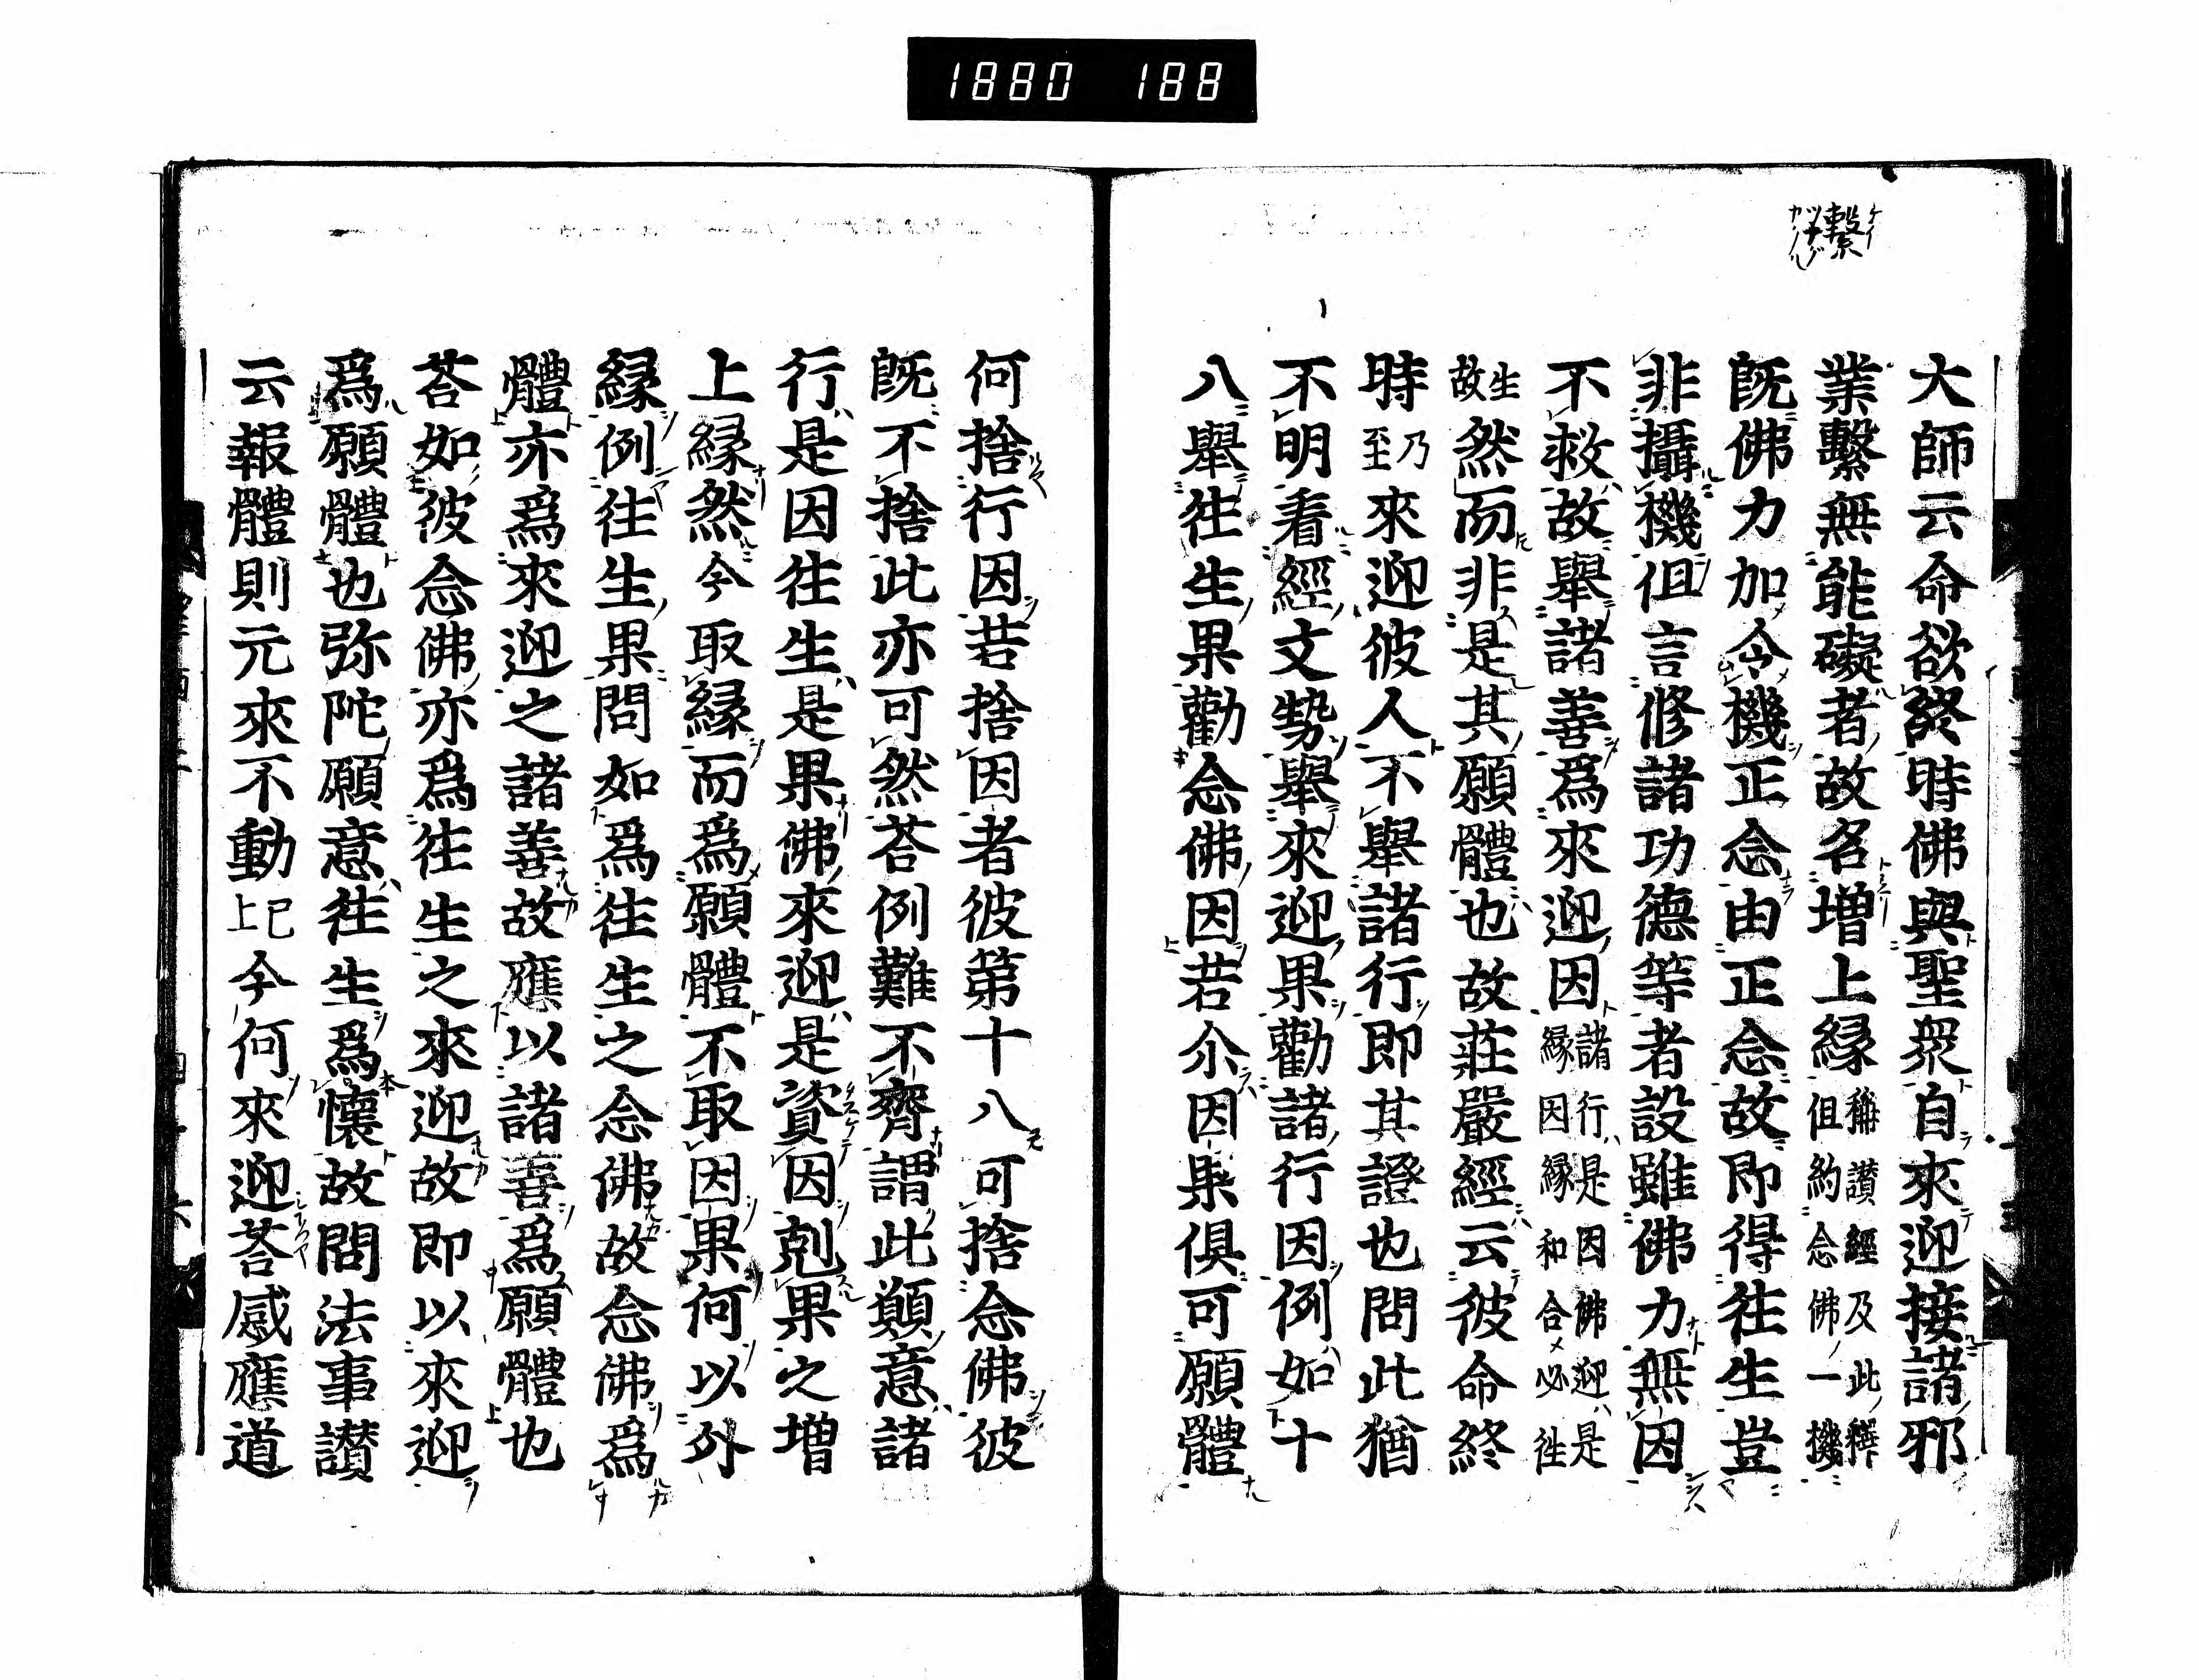 1880 188
繫
大師云命欲終時佛與聖衆自來迎接諸邪
業繫無能礙者故名增上縁稱讃經及此釋但約念佛一機
既佛力加令機正念由正念故即得往生豈
非攝機但言修諸功德等者設雖佛力無因
不救故舉諸善爲來迎因諸行是因佛迎是縁因縁和合必往
生故然而非是其願體也故莊嚴經云彼命終
時乃至來迎彼人不舉諸行即其證也問此猶
不明看經文勢舉來迎果勸諸行因例如十
八舉往生果勸念佛因若尒因果倶可願體
何捨行因若捨因者彼第十八可捨念佛彼
既不捨此亦可然荅例難不齊謂此顛意諸
行是因往生是果佛來迎是資因剋果之增
上縁然今取縁而爲願體不取因果何以外
縁例往生果問如爲往生之念佛故念佛爲
體亦爲來迎之諸善故應以諸善爲願體也
荅如彼念佛亦爲往生之來迎故即以來迎
爲願體也弥陀願意往生爲懷故問法事讃
云報體則元來不動已上今何來迎荅感應道